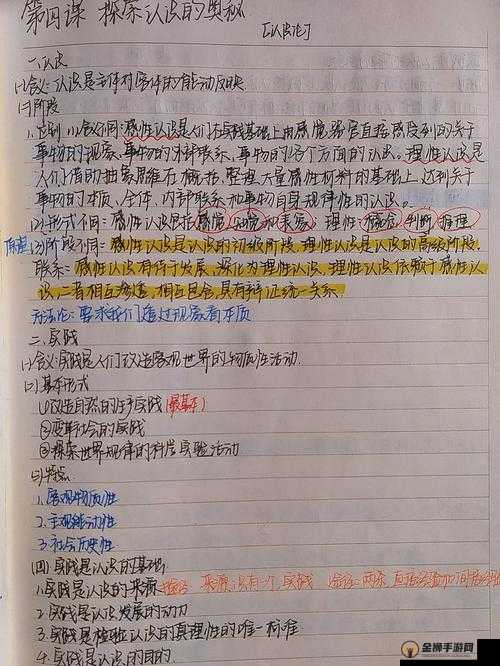 第四课 探索认识的奥秘
【认识论】
一.认识
(一)含义:认识是主体对客体的能动反映.
(二)阶段
1.区别:(1)含义不同:感性认识是人们在实践基础上由感觉器官直接感受到的关于
事物的现象、事物的外部联系、事物的各个方面的认识。理性认识是
人们借助抽象思维在概括、整理大量感性材料的基础上,达到关于
事物的本质、全体、内部联系和事物自身规律性的认识。
(2)形式不同:感性认识包括感觉、知觉和表象;理性:概念、判断、推理
(3)阶段不同:感性认识是认识的初级阶段,理性认识是认识的高级阶段.
联系:感性认识有待于发展、深化为理性认识,理性认识依赖于感性认
识,二者相互渗透,相互包含,具有辩证统一关系
方法论:要求我们透过现象看本质
二.实践
(一)含义:实践是人们改造客观世界的物质性活动.
(二)基本形式
①改造自然的生产实践(最基本)
②变革社会的实践
③探索世界规律的科学实验活动
(三)特点
1.客观物质性
2.主观能动性
3.社会历史性
(四)实践是认识的基础
1.实践是认识的来源 来源只有一个实践 两条 直接经验和间接经验
2.实践是认识发展的动力
3.实践是检验认识的真理性的唯一标准
4.实践是认识的目的
金狮手游网